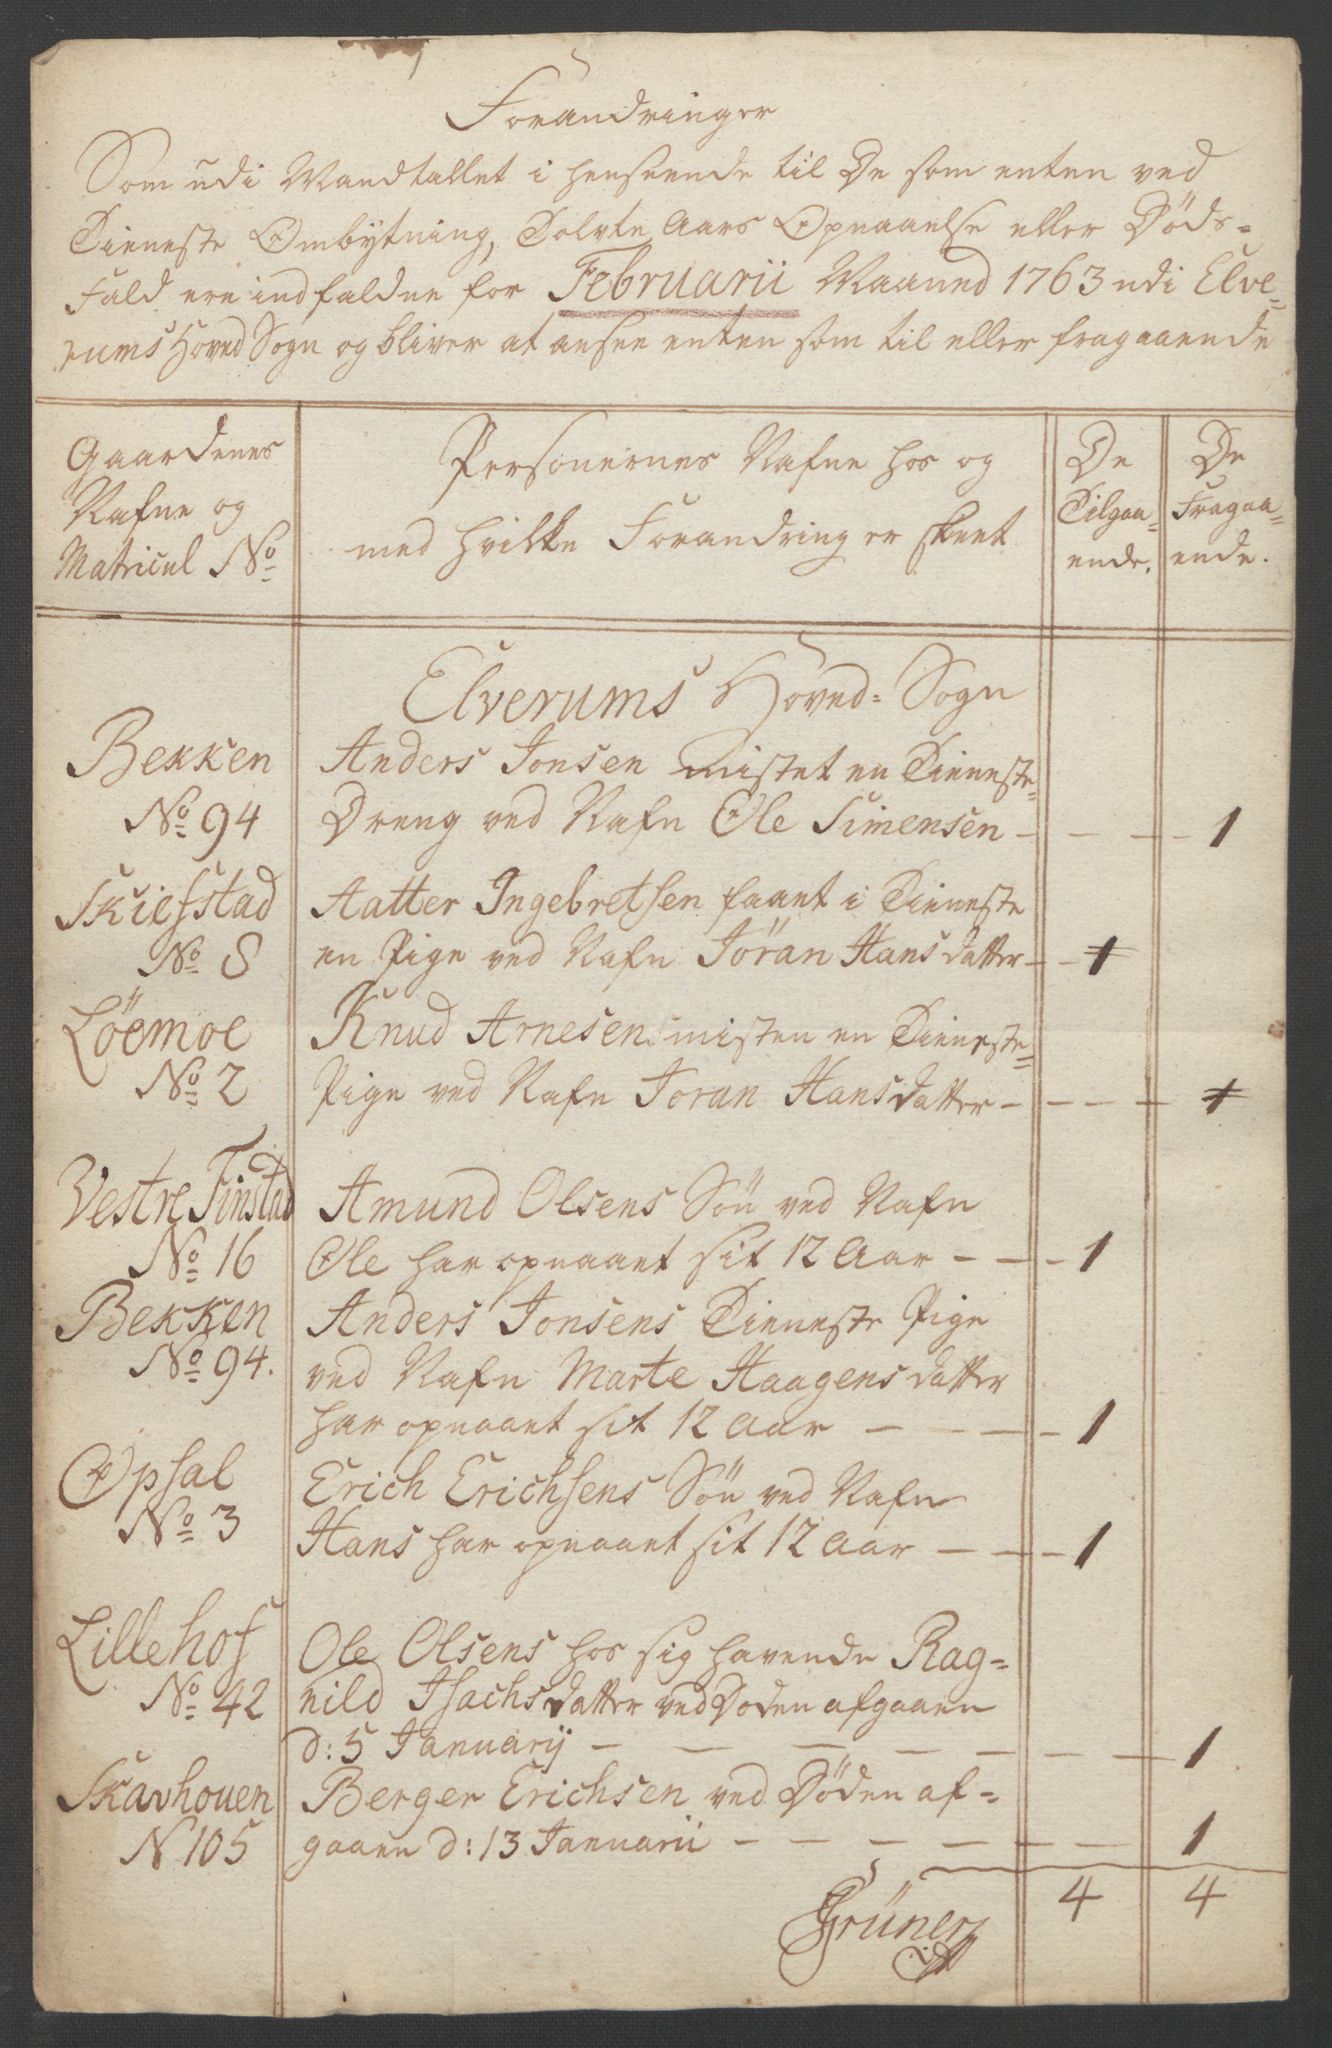 Forandringer
Som udi Mandtallet i henseende til De som enten ved
Tieneste Ombytning, Tolvte Aars Opnaaelse eller Døds-
Fald ere indfaldne for Februarii Maaned 1763 udi Elve-
rums Hoved Sogn og bliver at ansee enten som til eller fragaaende
Gaardenes
Nafne og
Matricul No
Personernes Nafne hos og
med hvilke Forandring er skeet
De
Tilgaa-
ende.
De
Fragaa-
ende.
Elverums Hoved-Sogn
Bekken Anders Jonsen mistet en Tieneste-
No 94 Dreng ved Nafn Ole Simensen - - - 1
Skiefstad Aatter Ingebretsen faaet i Tieneste
No 8 en Pige ved Nafn Jöran Hans datter - - 1
Löemoe Knud Arnesen misten en Tieneste-
No 2 Pige ved Nafn Joran Hans datter - - - - 1
Vestre Finstad Amund Olsens Søn ved Nafn
No 16 Ole har opnaaet sit 12 Aar - - - 1
Bekken Anders Jonsens Tieneste Pige
No 94. ved Nafn Marte Haagens datter
har opnaaet sit 12 Aar - - - - 1
Opsal Erich Erichsens Søn ved Nafn
No 3 Hans har opnaaet sit 12 Aar - - - 1
Lillehof Ole Olsens hos sig havende Rag-
No 42 nild Isachs datter ved Døden afgaaen
d: 5 Januarij - - - - - - - 1
Skavhouen Berger Erichsen ved Døden af-
N 105 gaaen d: 13 Januarii - - - - - - - 1
4 4
Grüner